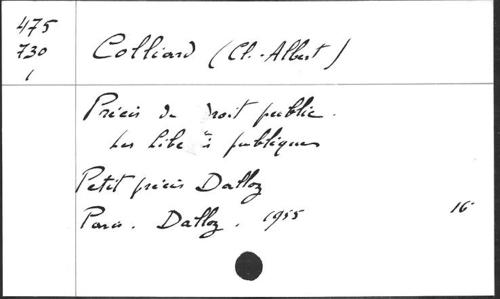 475
730
1
Colliard (Cl.-Albert)
Précis de Droit public.
Les Libe és publiques
Petit précis Dalloz
Paris. Dalloz. 1955 16